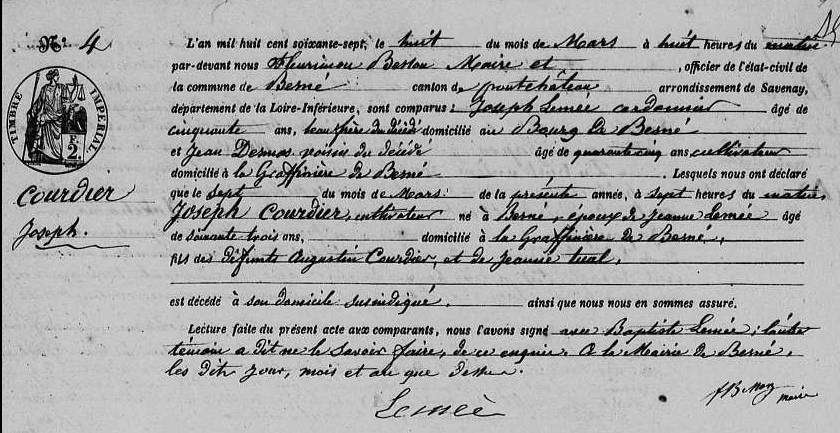 N° 4
L'an mil huit cent soixante-sept, le huit du mois de Mars à huit heures du matin
par-devant nous Fleurimon Maire et , officier de l'état-civil de
la commune de Besné canton de pontchâteau arrondissement de Savenay,
département de la Loire-Inférieure, sont comparus : Joseph Lemée cordonnier âgé de
cinquante ans, beau frère du décédé domicilié au Bourg de Besné
et Jean voisin du décédé âgé de quarante cinq ans cultivateur
domicilié à la Graffinière de Besné . Lesquels nous ont déclaré
que le sept du mois de Mars de la présente année, à sept heures du matin,
Joseph Courdier, cultivateur né à Besné, époux de Jeanne Lemée âgé
de soixante trois ans, domicilié à la Graffinière de Besné,
fils des défunts Augustin Courdier, et de jeanne
est décédé à son domicile susindiqué. ainsi que nous nous en sommes assuré.
Lecture faite du présent acte aux comparants, nous l'avons signé avec Baptiste Lemée; l'autre
témoin a dit ne le savoir faire, de ce enquis. A la Mairie de Besné,
les dits jour, mois et an que dessus.
Lemée
maire
TIMBRE IMPÉRIAL
2.
Courdier
Joseph.